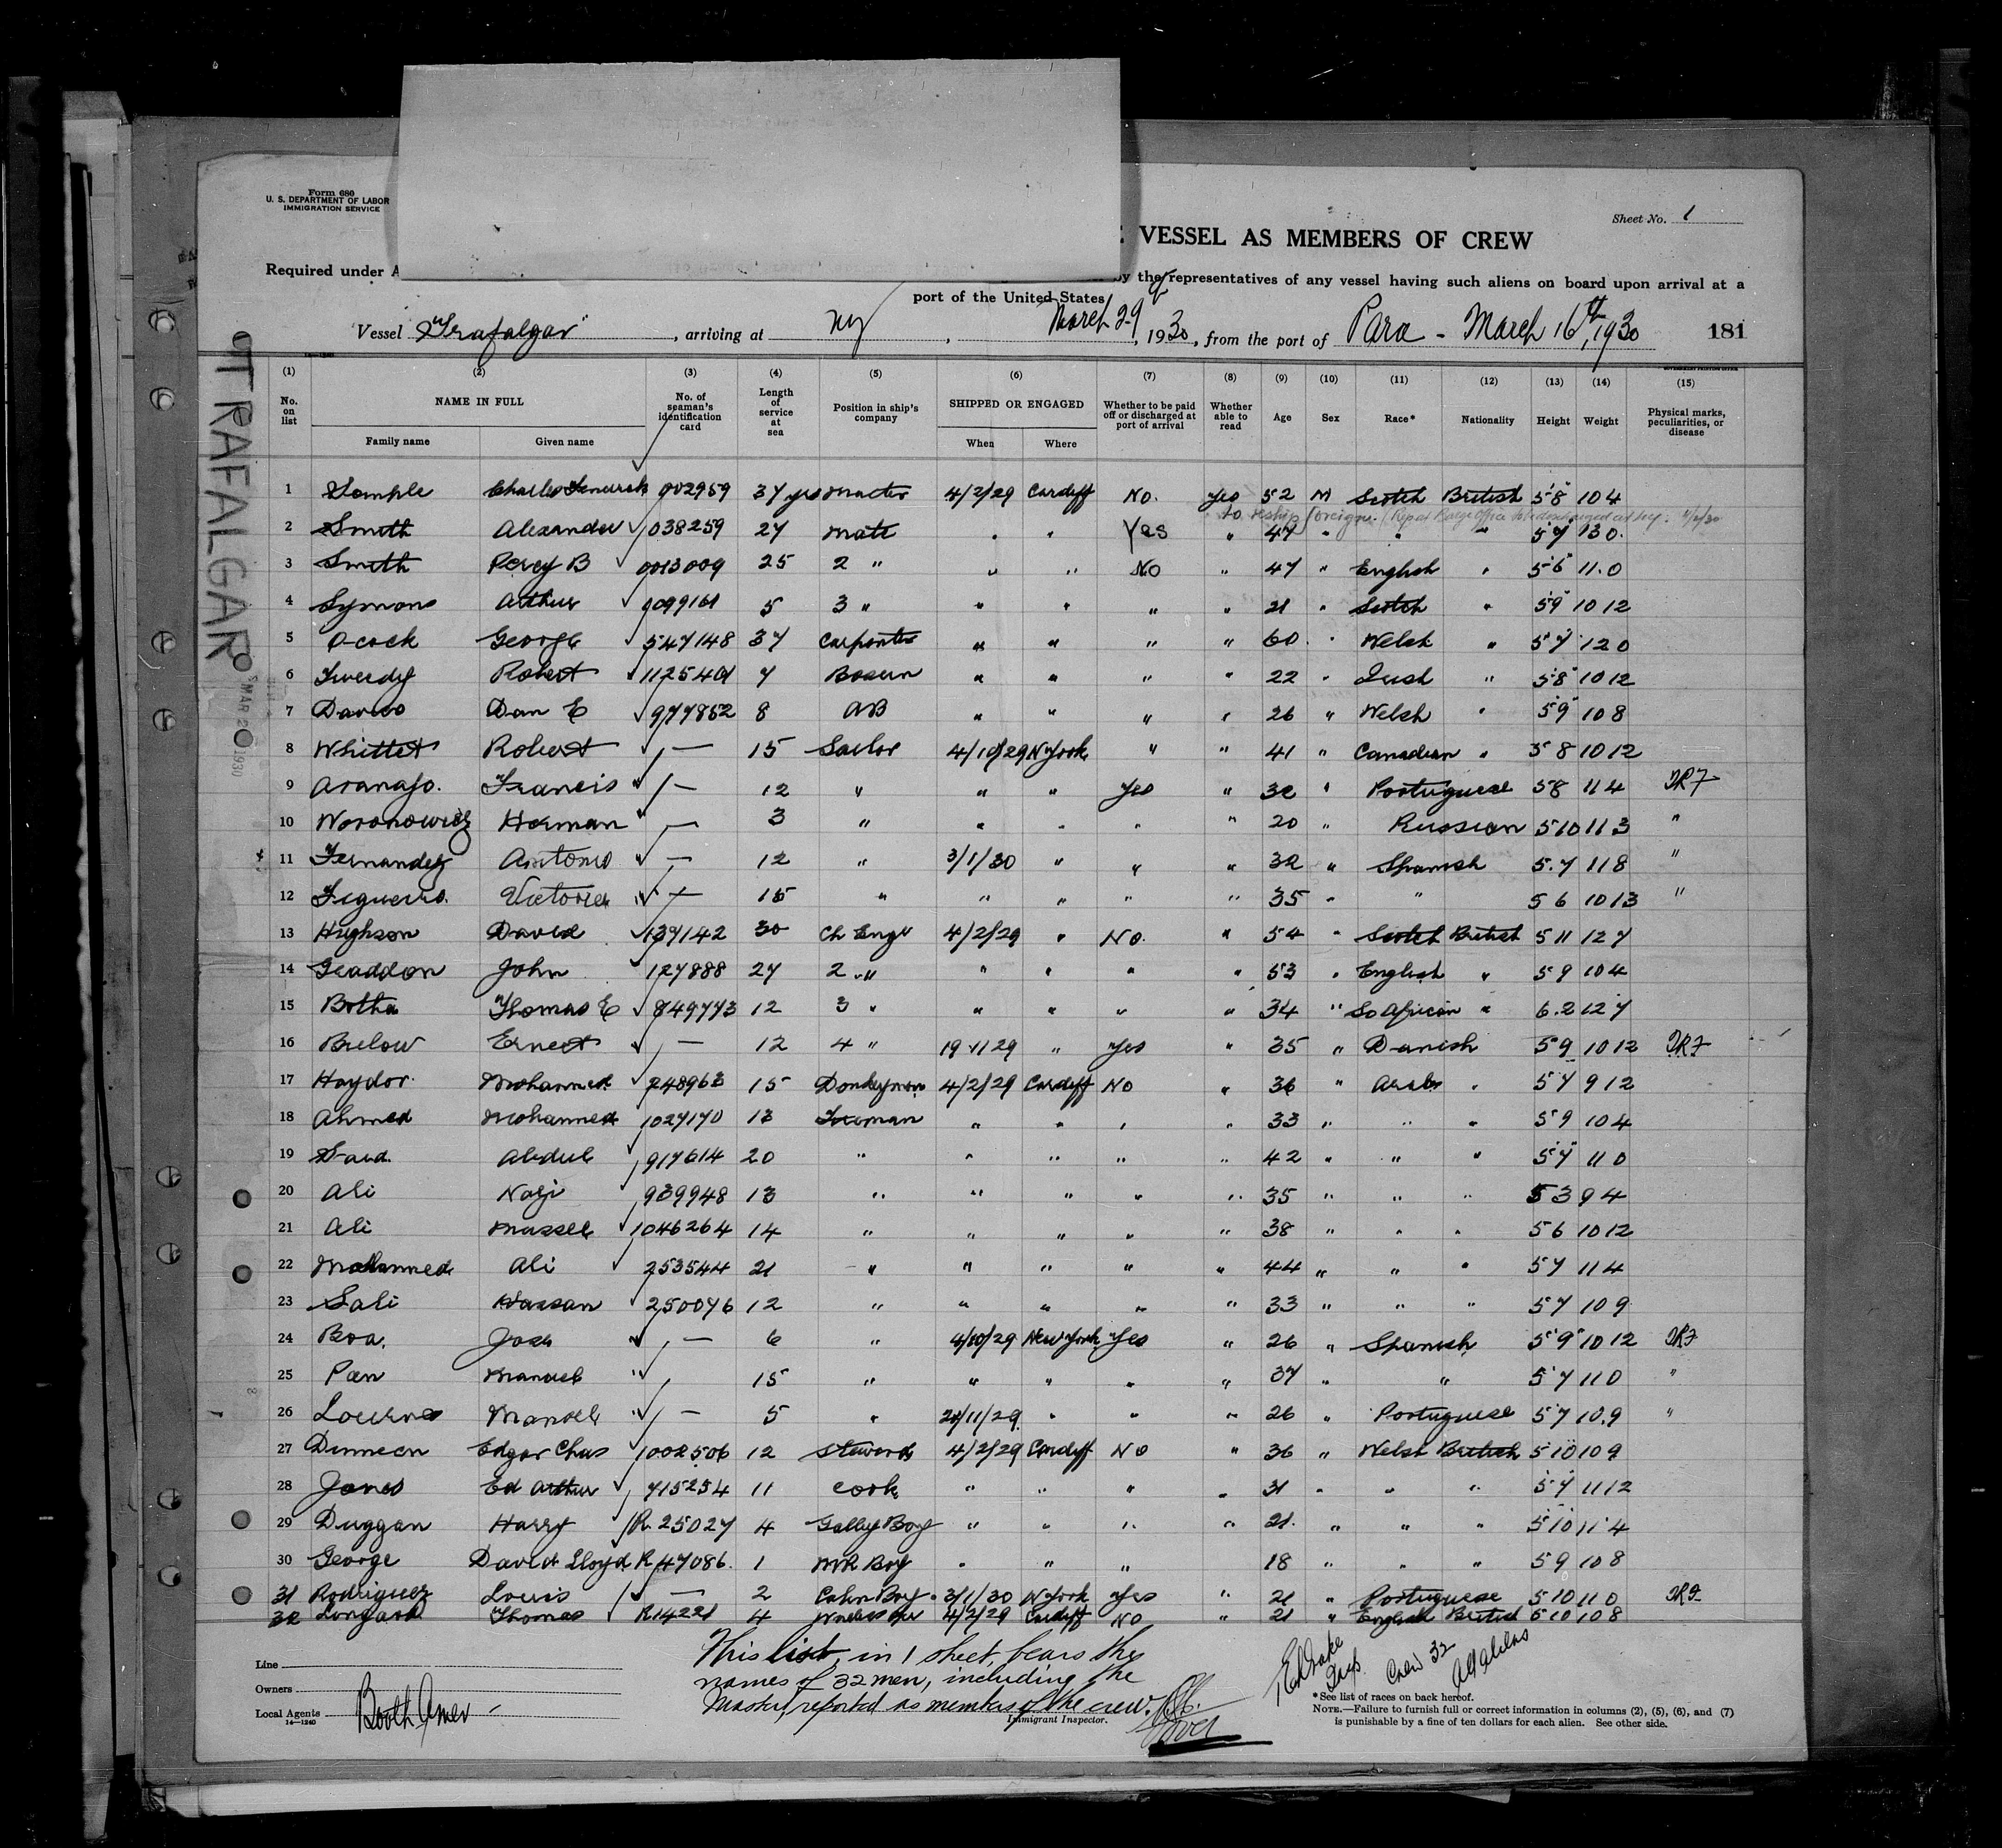 Form 680
U. S. DEPARTMENT OF LABOR
IMMIGRATION SERVICE
Sheet No. 1
VESSEL AS MEMBERS OF CREW
Required under A
by the representatives of any vessel having such aliens on board upon arrival at a
port of the United States
Vessel "Trafalgar", arriving at NY, March 29, 1930, from the port of Para - March 16th, 1930 181
TRAFALGAR
MAR 20 1930
(1) (2) (3) (4) (5) (6) (7) (8) (9) (10) (11) (12) (13) (14) (15)
No. on list NAME IN FULL No. of seaman's identification card Length of service at sea Position in ship's company SHIPPED OR ENGAGED Whether to be paid off or discharged at port of arrival Whether able to read Age Sex Race* Nationality Height Weight Physical marks, peculiarities, or disease
Family name Given name When Where
1 Semple Charles 002959 37 yrs Master 4/2/29 Cardiff No. yes 52 M Scotch British 5'8" 10 4
to reship foreign.
2 Smith Alexander 038259 27 Mate " " Yes " 47 " " " 5'7 13 0.
3 Smith Percy B 0013009 25 2 " " " No " 47 " English " 5'6" 11.0
4 Symons Arthur 1099161 5 3 " " " " " 21 " Scotch " 5'9" 10 12
5 Acock George 547148 37 Carpenter " " " " 60 " Welsh " 5'7 12 0
6 Tweedy Robert 1125401 7 Bosun " " " " 22 " Irish " 5'8" 10 12
7 Davies Dan E 977852 8 AB " " " " 26 " Welsh " 5'9" 10 8
8 Whittet Robert — 15 Sailor 4/10/29 N York " " 41 " Canadian " 5 8 10 12
9 Aranajo. Francis — 12 " " " Yes " 32 " Portuguese 5 8 11 4
10 Woronowicz Herman — 3 " " " " " 20 " Russian 5 10 11 3 "
11 Fernandez Antonio — 12 " 3/1/30 " " " 32 " Spanish 5.7 11 8 "
12 Figuerro. Victorio — 15 " " " " " 35 " " 5 6 10 13 "
13 Hughson David 137142 30 Ch Engr 4/2/29 " No. " 54 " Scotch British 5 11 12 7
14 Geaddon John 127888 27 2 " " " " " 53 " English " 5 9 10 4
15 Botha Thomas E 849773 12 3 " " " " " 34 " So African " 6.2 12 7
16 Bulow Ernest — 12 4 " 19 11 29 " Yes " 35 " Danish 5 9 10 12
17 Haydor Mohammed 248963 15 Donkeyman 4/2/29 Cardiff No " 36 " Arab " 5 7 9 12
18 Ahmed Mohammed 1027170 13 Fireman " " " " 33 " " " 5 9 10 4
19 Said. Abdul 917614 20 " " " " " 42 " " " 5'7" 11 0
20 Ali Naji 939948 13 " " " " " 35 " " " 5 3 9 4
21 Ali Mussel 1046264 14 " " " " " 38 " " " 5 6 10 12
22 Mohammed Ali 253544 21 " " " " " 44 " " " 5 7 11 4
23 Sali Hassan 250076 12 " " " " " 33 " " " 5 7 10 9
24 Boa, Jose — 6 " 4/10/29 New York Yes " 26 " Spanish 5'9" 10 12
25 Pan Manuel 15 " " " " " 37 " " 5 7 11 0 "
26 Manoel — 5 " 20/11/29 " " " 26 " Portuguese 5 7 10.9 "
27 Edgar Chas 1002506 12 Steward 4/2/29 Cardiff No " 36 " Welsh British 5 10 10 9
28 Jones Ed Arthur 715254 11 Cook " " " " 31 " " " 5'7 11 12
29 Duggan Harry R. 25027 4 Galley Boy " " " " 21. " " " 5'10 11'4
30 George David Lloyd R 47086. 1 MR Boy " " " 18 " " " 5 9 10 8
31 Rodriguez Louis — 2 Cabin Boy 3/1/30 N York Yes " 21 " Portuguese 5 10 11 0
32 Thomas R14221 4 4/2/29 Cardiff No " 21 " English British 5 10 10 8
This list, in 1 sheet, bears the
names of 32 men, including the
Master, reported as members of the crew.
Crew 32
All aliens
Line
Owners
Local Agents Booth Amer
14—1240
Immigrant Inspector.
*See list of races on back hereof.
NOTE.—Failure to furnish full or correct information in columns (2), (5), (6), and (7)
is punishable by a fine of ten dollars for each alien. See other side.